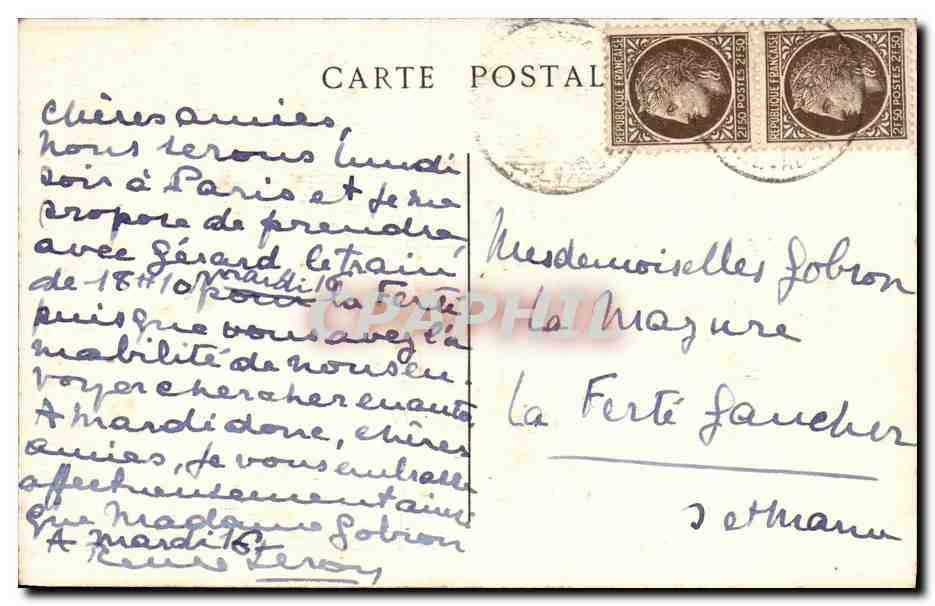 CARTE POSTAL
REPUBLIQUE FRANÇAISE
2F50 POSTES 2F50
REPUBLIQUE FRANÇAISE
2F50 POSTES 2F50
Chères amies,
nous serons lundi
soir à Paris et je me
propose de prendre,
avec Gérard le train
mardi 16
de 18H10 pour la Ferté
puisque vous avez l'a
mabilité de nous en.
voyer chercher en auto
A mardi donc, chères
amies, je vous embrasse
affectueusement ainsi
que Madame Gobron
A mardi 16
Renée Leroy
Mesdemoiselles Gobron
La Mazure
La Ferté Gaucher
S et Marne
CPAPHIL